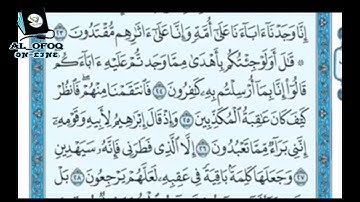 AL_OFOQ
ON-LINE
إِنَّا وَجَدْنَآ ءَابَآءَنَا عَلَىٰٓ أُمَّةٍ وَإِنَّا عَلَىٰٓ ءَاثَٰرِهِم مُّقْتَدُونَ ٢٣
* قَٰلَ أَوَلَوْ جِئْتُكُم بِأَهْدَىٰ مِمَّا وَجَدتُّمْ عَلَيْهِ ءَابَآءَكُمْ
قَالُوٓا۟ إِنَّا بِمَآ أُرْسِلْتُم بِهِۦ كَٰفِرُونَ ٢٤ فَٱنتَقَمْنَا مِنْهُمْ فَٱنظُرْ
كَيْفَ كَانَ عَٰقِبَةُ ٱلْمُكَذِّبِينَ ٢٥ وَإِذْ قَالَ إِبْرَٰهِيمُ لِأَبِيهِ وَقَوْمِهِۦٓ
إِنَّنِى بَرَآءٌ مِّمَّا تَعْبُدُونَ ٢٦ إِلَّا ٱلَّذِى فَطَرَنِى فَإِنَّهُۥ سَيَهْدِينِ
٢٧ وَجَعَلَهَا كَلِمَةًۢ بَاقِيَةً فِى عَقِبِهِۦ لَعَلَّهُمْ يَرْجِعُونَ ٢٨ بَلْ